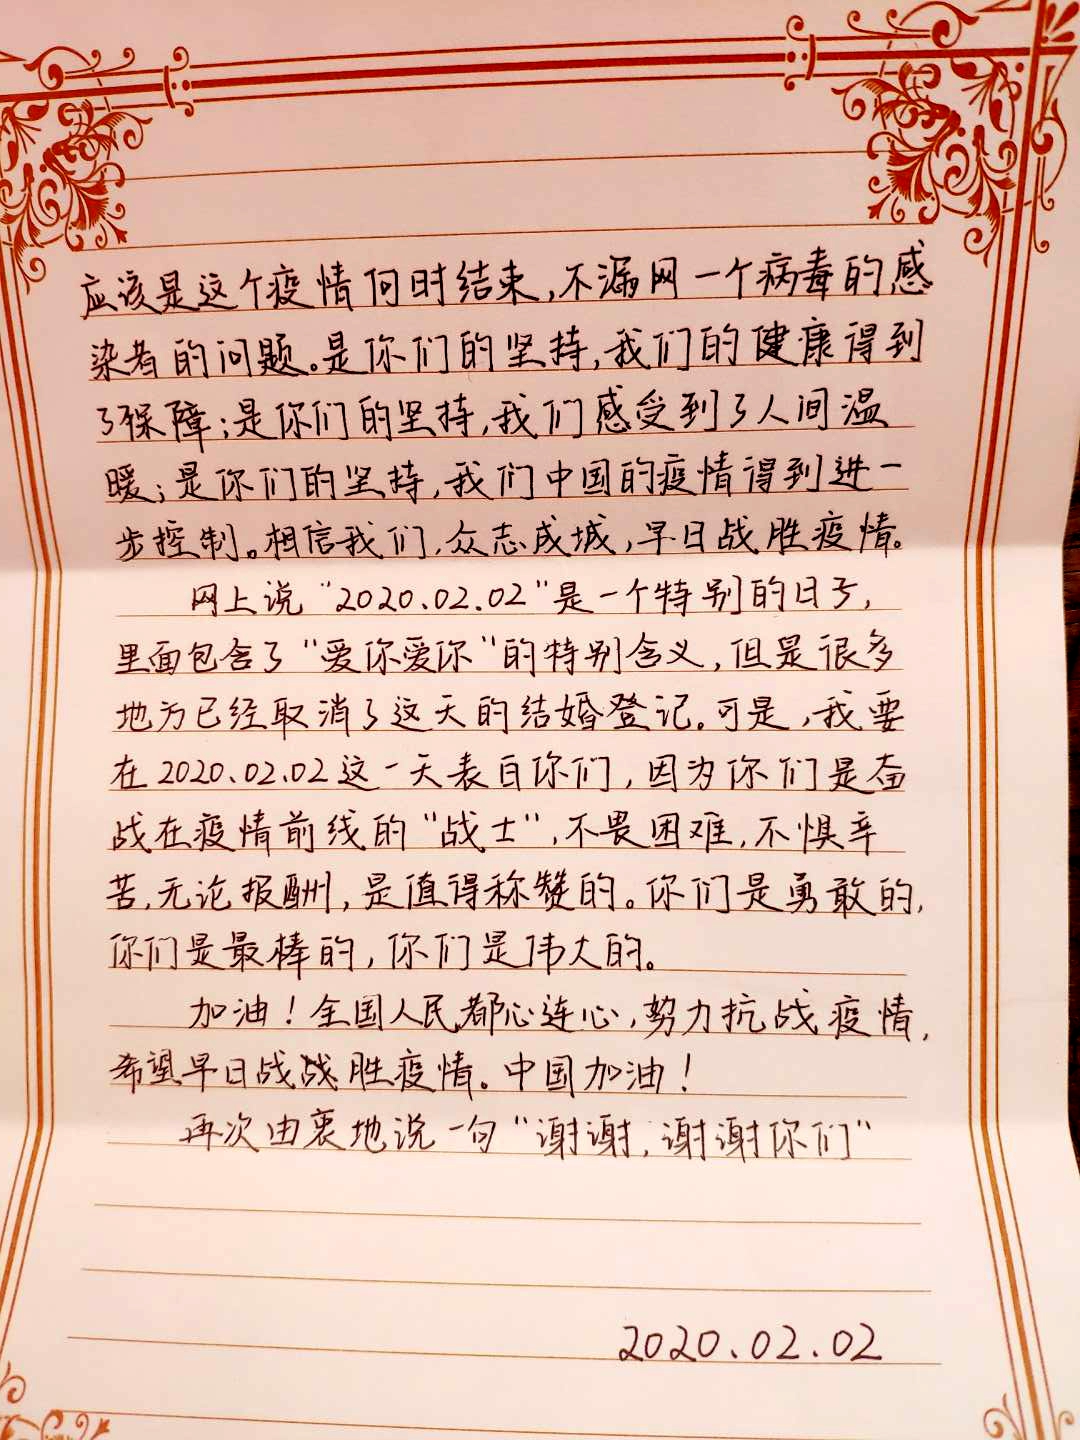 应该是这个疫情何时结束,不漏网一个病毒的感
染者的问题。是你们的坚持,我们的健康得到
了保障;是你们的坚持,我们感受到了人间温
暖;是你们的坚持,我们中国的疫情得到进一
步控制。相信我们,众志成城,早日战胜疫情。
网上说“2020.02.02”是一个特别的日子,
里面包含了“爱你爱你”的特别含义,但是很多
地方已经取消了这天的结婚登记。可是,我要
在2020.02.02这一天表白你们,因为你们是奋
战在疫情前线的“战士”,不畏困难,不惧辛
苦,无论报酬,是值得称赞的。你们是勇敢的,
你们是最棒的,你们是伟大的。
加油!全国人民都心连心,努力抗战疫情,
希望早日战战胜疫情。中国加油!
再次由衷地说一句“谢谢,谢谢你们”
2020.02.02